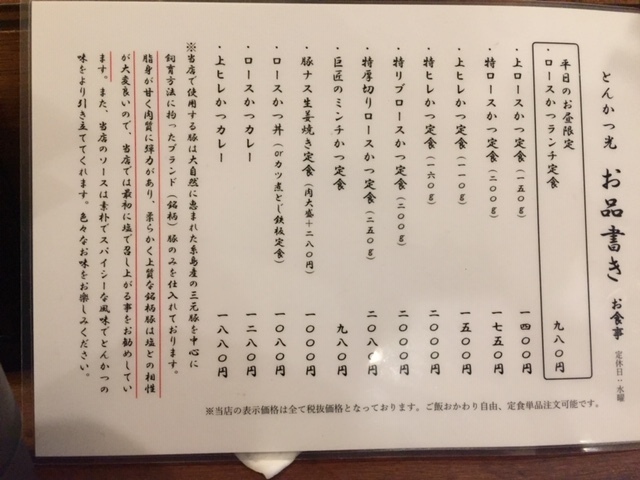 とんかつ光 お品書き お食事 定休日：水曜
平日のお昼限定
・ロースかつランチ定食 九八〇円
・上ロースかつ定食（一五〇g） 一四〇〇円
・特ロースかつ定食（二〇〇g） 一七五〇円
・上ヒレかつ定食（一一〇g） 一五〇〇円
・特ヒレかつ定食（一六〇g） 二〇〇〇円
・特リブロースかつ定食（二〇〇g） 二〇〇〇円
・特厚切りロースかつ定食（二五〇g） 二〇八〇円
・巨匠のミンチかつ定食 九八〇円
・豚ナス生姜焼き定食（肉大盛＋二八〇円） 一〇〇〇円
・ロースかつ丼（orカツ煮とじ鉄板定食） 一〇八〇円
・ロースかつカレー 一二八〇円
・上ヒレかつカレー 一八八〇円
※当店で使用する豚は大自然に恵まれた糸島産の三元豚を中心に
飼育方法に拘ったブランド（銘柄）豚のみを仕入れております。
脂身が甘く肉質に弾力があり、柔らかく上質な銘柄豚は塩との相性
が大変良いので、当店では最初に塩で召し上がる事をお勧めしてい
ます。また、当店のソースは素朴でスパイシーな風味でとんかつの
味をより引き立ててくれます。色々なお味をお楽しみください。
※当店の表示価格は全て税抜価格となっております。ご飯おかわり自由、定食単品注文可能です。